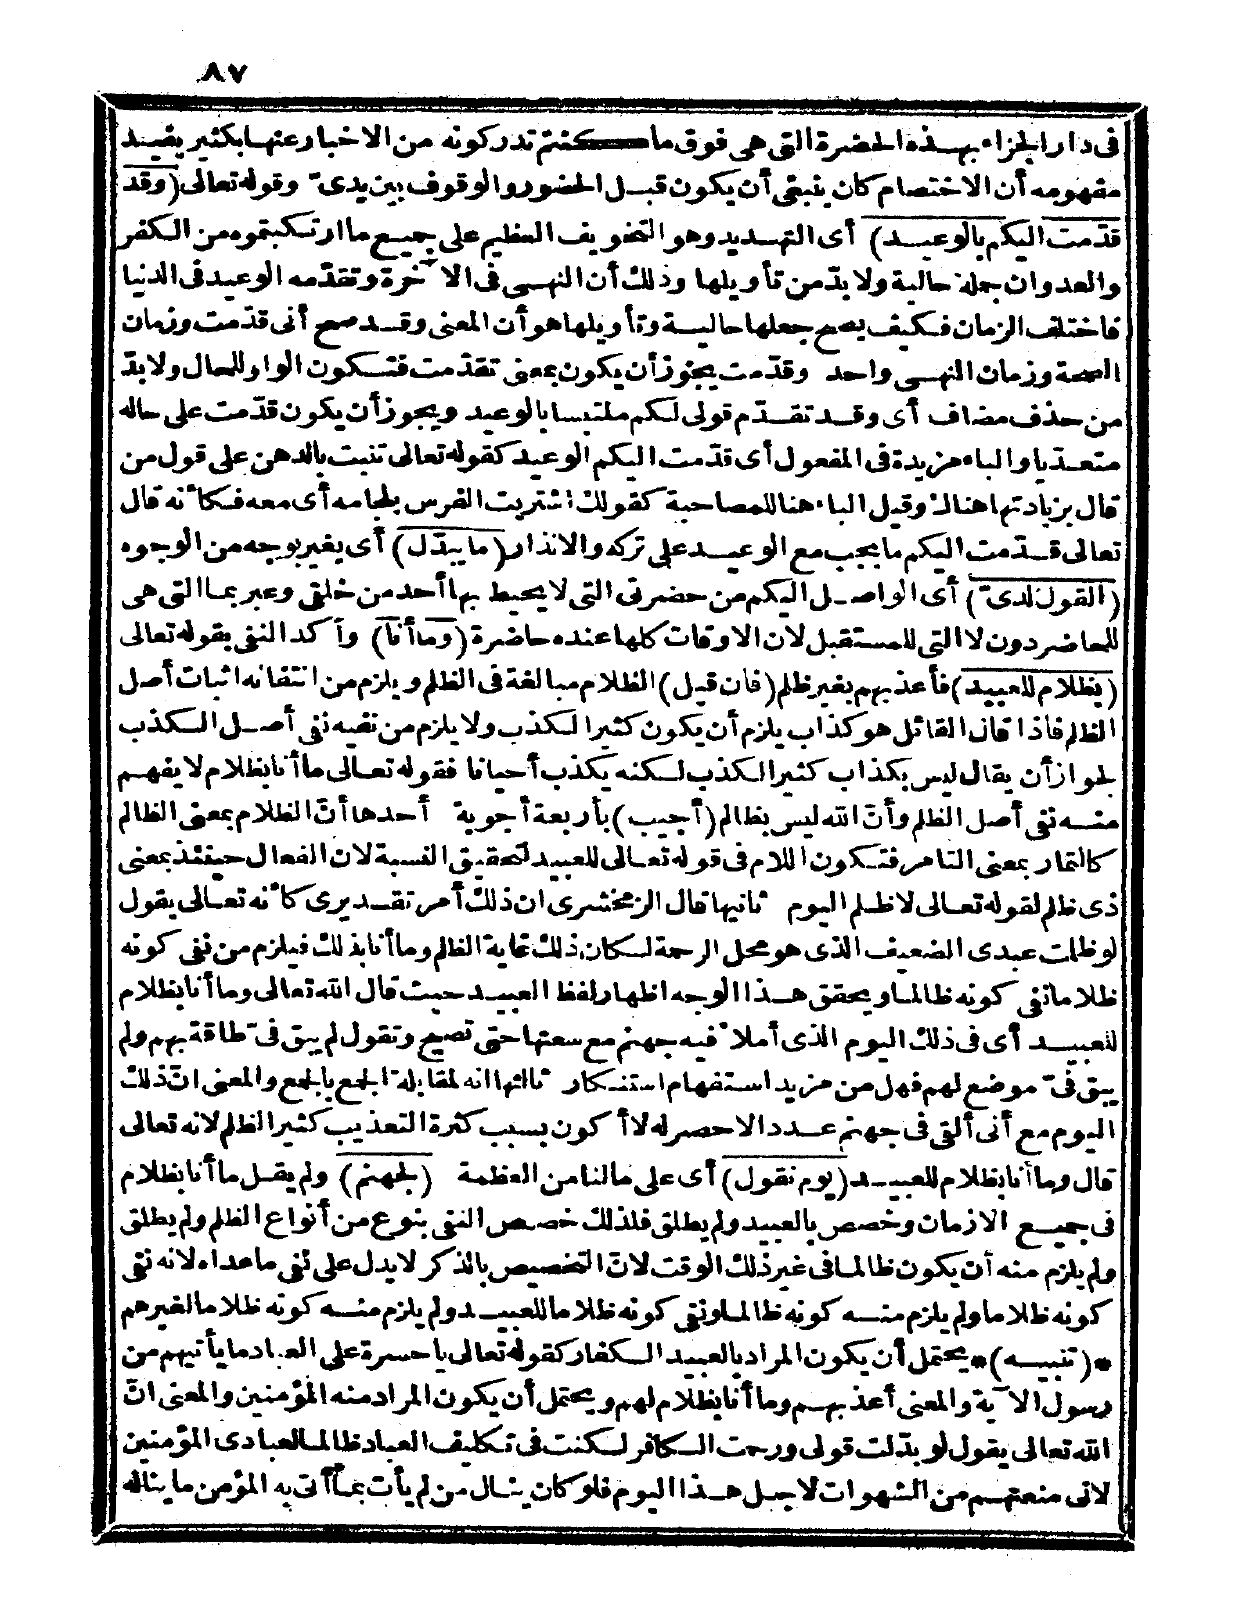 ٨٧
فى دار الجزاء بهذه الحضرة التى هى فوق ما كنتم تدركونه من الاخبار عنها بكثير يفيد
مفهومه أن الاختصام كان ينبغى أن يكون قبل الحضور والوقوف بين يدىّ وقوله تعالى (وقد
قدّمت اليكم بالوعيد) أى التهديد وهو التخويف العظيم على جميع ما ارتكبتموه من الكفر
والعدوان جملة حالية ولا بدّ من تأويلها وذلك أن النهى فى الآخرة وتقدّمه الوعيد فى الدنيا
فاختلف الزمان فكيف يصح جعلها حالية وتأويلها هو أن المعنى وقد صح أنى قدّمت وزمان
الصحة وزمان النهى واحد وقدّمت يجوز أن يكون بمعنى تقدّمت فتكون الواو للحال ولا بدّ
من حذف مضاف أى وقد تقدّم قولى لكم ملتبسا بالوعيد ويجوز أن يكون قدّمت على حاله
متعدّيا والباء مزيدة فى المفعول أى قدّمت اليكم الوعيد كقوله تعالى تنبت بالدهن على قول من
قال بزيادتها هناك وقيل الباء هنا للمصاحبة كقولك اشتريت الفرس بلجامه أى معه فكأنه قال
تعالى قدّمت اليكم ما يجب مع الوعيد على تركه والانذار (ما يبدّل) أى يغير بوجه من الوجوه
(القول لدىّ) أى الواصل اليكم من حضرتى التى لا يحيط بها أحد من خلقى وعبر بما التى هى
للحاضر دون لا التى للمستقبل لان الاوقات كلها عنده حاضرة (وما أنا) وأكد النفى بقوله تعالى
(بظلام للعبيد) فأعذبهم بغير ظلم (فان قيل) الظلام مبالغة فى الظلم ويلزم من انتفائه اثبات أصل
الظلم فاذا قال القائل هو كذاب يلزم أن يكون كثير الكذب ولا يلزم من نفيه نفى أصل الكذب
لجواز أن يقال ليس بكذاب كثير الكذب لكنه يكذب أحيانا فقوله تعالى ما أنا بظلام لا يفهم
منه نفى أصل الظلم وأنّ الله ليس بظالم (أجيب) بأربعة أجوبة أحدها أنّ الظلام بمعنى الظالم
كالتمار بمعنى التامر فتكون اللام فى قوله تعالى للعبيد لتحقيق النسبة لان الفعال حينئذ بمعنى
ذى ظلم لقوله تعالى لا ظلم اليوم ثانيها قال الزمخشرى ان ذلك أمر تقديرى كأنه تعالى يقول
لو ظلمت عبدى الضعيف الذى هو محل الرحمة لكان ذلك غاية الظلم وما أنا بذلك فيلزم من نفى كونه
ظلاما نفى كونه ظالما ويحقق هذا الوجه اظهار لفظ العبيد حيث قال الله تعالى وما أنا بظلام
للعبيد أى فى ذلك اليوم الذى أملأ فيه جهنم مع سعتها حتى تصيح وتقول لم يبق فىّ طاقة بهم ولم
يبق فىّ موضع لهم فهل من مزيد استفهام استنكار ثالثها انه لمقابلة الجمع بالجمع والمعنى انّ ذلك
اليوم مع أنى ألقى فى جهنم عددا لا حصر له لا أكون بسبب كثرة التعذيب كثير الظلم لانه تعالى
قال وما أنا بظلام للعبيد (يوم نقول) أى على ما لنا من العظمة (لجهنم) ولم يقل ما أنا بظلام
فى جميع الازمان وخصص بالعبيد ولم يطلق فلذلك خصص النفى بنوع من أنواع الظلم ولم يطلق
ولم يلزم منه أن يكون ظالما فى غير ذلك الوقت لانّ التخصيص بالذكر لا يدل على نفى ما عداه لانه نفى
كونه ظلاما ولم يلزم منه كونه ظالما ونفى كونه ظلاما للعبيد ولم يلزم منه كونه ظلاما لغيرهم
*(تنبيه)* يحتمل أن يكون المراد بالعبيد الكفار كقوله تعالى يا حسرة على العباد ما يأتيهم من
رسول الآية والمعنى أعذبهم وما أنا بظلام لهم ويحتمل أن يكون المراد منه المؤمنين والمعنى انّ
الله تعالى يقول لو بدّلت قولى ورحمت الكافر لكنت فى تكليف العباد ظالما لعبادى المؤمنين
لانى منعتهم من الشهوات لاجل هذا اليوم فلو كان ينال من لم يأت بما أتى به المؤمن ما يناله